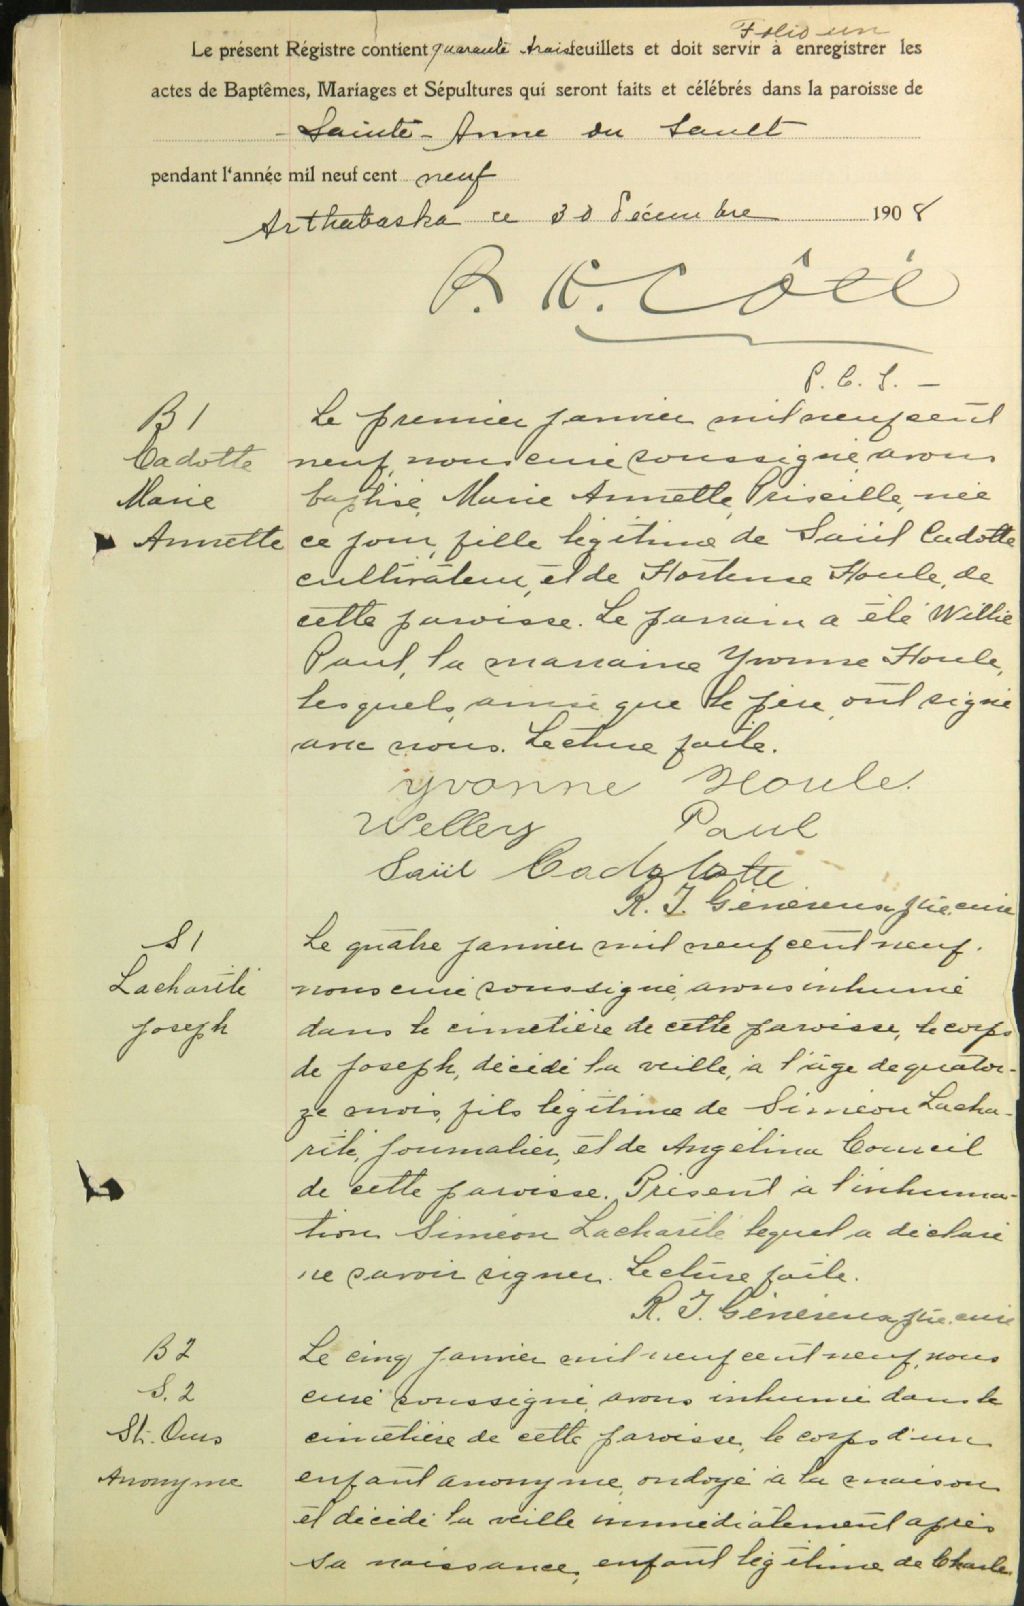 Folio un
Le présent Régistre contient quarante trois feuillets et doit servir à enregistrer les
actes de Baptêmes, Mariages et Sépultures qui seront faits et célébrés dans la paroisse de
- Sainte-Anne du Sault
pendant l'année mil neuf cent neuf
Arthabaska ce 30 Décembre 1908
P. H. Côté
P. C. S. -
B 1
Cadotte
Marie
Annette
Le premier janvier mil neuf cent
neuf, nous curé soussigné, avons
baptisé, Marie Annette, Priscille, née
ce jour, fille légitime de Saül Cadotte
cultivateur, et de Hortense Houle, de
cette paroisse. Le parrain a été Willie
Paul, la marraine Yvonne Houle,
lesquels, ainsi que le père, ont signé
avec nous. Lecture faite.
Yvonne Houle.
Welley Paul
Saül Cadotte
R. J. Généreux, ptre. curé
S 1
Lacharité
Joseph
Le quatre janvier mil neuf cent neuf.
nous curé soussigné, avons inhumé
dans le cimetière de cette paroisse, le corps
de Joseph, décédé la veille, à l'âge de quator-
ze mois, fils légitime de Siméon Lacha-
rité, journalier, et de Angélina Courcil
de cette paroisse. Présent à l'inhuma-
tion Siméon Lacharité lequel a déclaré
ne savoir signer. Lecture faite.
R. J. Généreux, ptre. curé
B 2
S. 2
St. Ours
Anonyme
Le cinq janvier mil neuf cent neuf, nous
curé soussigné, avons inhumé dans le
cimetière de cette paroisse, le corps d'un
enfant anonyme, ondoyé à la maison
et décédé la veille immédiatement après
sa naissance, enfant légitime de Charles